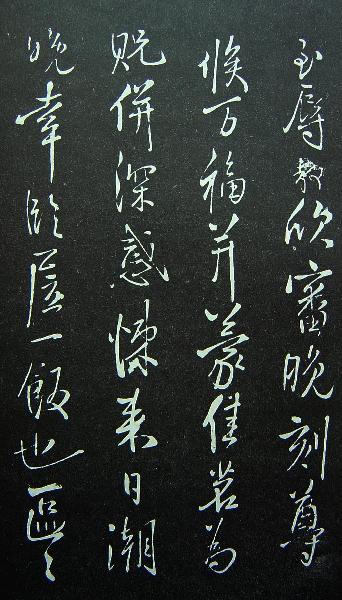 至辱教欣審晚刻尊
候万福并蒙佳茗為
貺併深感悚来日潮
晚幸臨屈一飯也區々